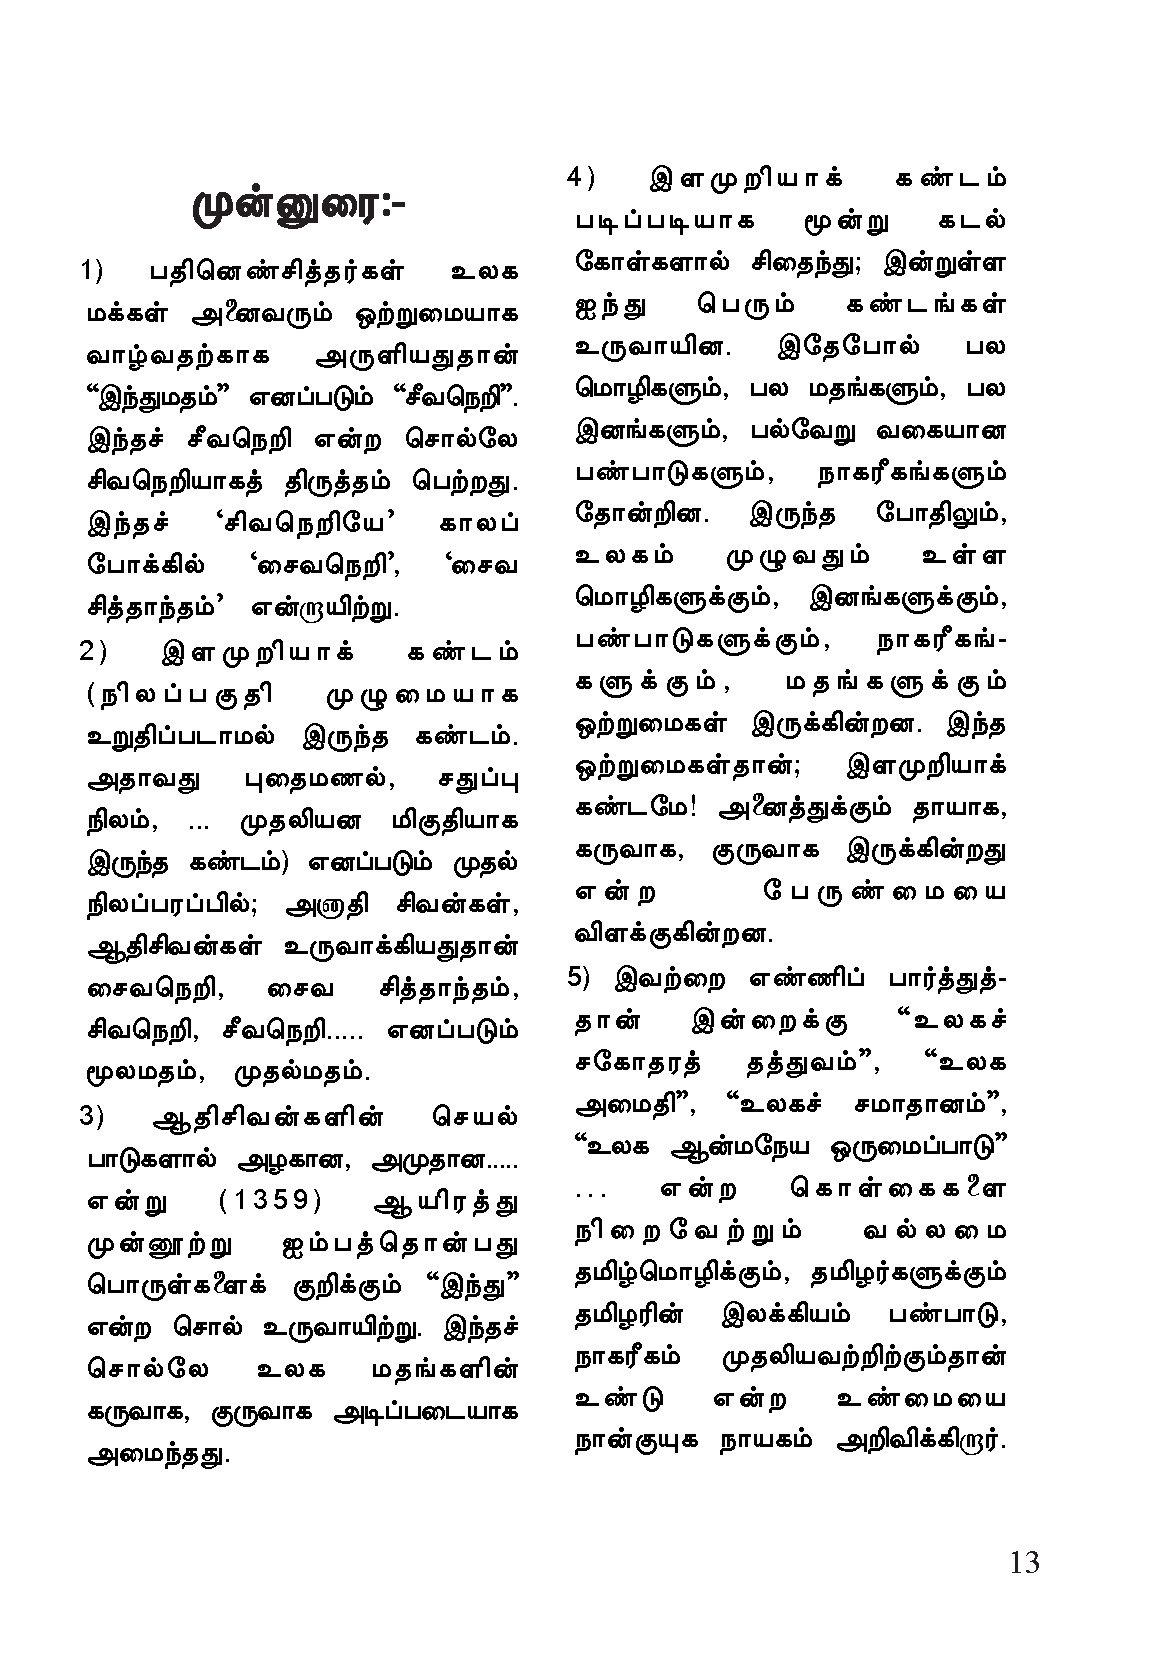 முன்னுரை:-
1) பதினெண்சித்தர்கள் உலக
மக்கள் அனைவரும் ஒற்றுமையாக
வாழ்வதற்காக அருளியதுதான்
“இந்துமதம்” எனப்படும் “சீவநெறி”.
இந்தச் சீவநெறி என்ற சொல்லே
சிவநெறியாகத் திருத்தம் பெற்றது.
இந்தச் ‘சிவநெறியே’ காலப்
போக்கில் ‘சைவநெறி’, ‘சைவ
சித்தாந்தம்’ என்றாயிற்று.
2) இளமுறியாக் கண்டம்
(நிலப்பகுதி முழுமையாக
உறுதிப்படாமல் இருந்த கண்டம்.
அதாவது புதைமணல், சதுப்பு
நிலம், ... முதலியன மிகுதியாக
இருந்த கண்டம்) எனப்படும் முதல்
நிலப்பரப்பில்; அனாதி சிவன்கள்,
ஆதிசிவன்கள் உருவாக்கியதுதான்
சைவநெறி, சைவ சித்தாந்தம்,
சிவநெறி, சீவநெறி..... எனப்படும்
மூலமதம், முதல்மதம்.
3) ஆதிசிவன்களின் செயல்
பாடுகளால் அழகான, அமுதான.....
என்று (1359) ஆயிரத்து
முன்னூற்று ஐம்பத்தொன்பது
பொருள்களைக் குறிக்கும் “இந்து”
என்ற சொல் உருவாயிற்று. இந்தச்
சொல்லே உலக மதங்களின்
கருவாக, குருவாக அடிப்படையாக
அமைந்தது.
4) இளமுறியாக் கண்டம்
படிப்படியாக மூன்று கடல்
கோள்களால் சிதைந்து; இன்றுள்ள
ஐந்து பெரும் கண்டங்கள்
உருவாயின. இதேபோல் பல
மொழிகளும், பல மதங்களும், பல
இனங்களும், பல்வேறு வகையான
பண்பாடுகளும், நாகரீகங்களும்
தோன்றின. இருந்த போதிலும்,
உலகம் முழுவதும் உள்ள
மொழிகளுக்கும், இனங்களுக்கும்,
பண்பாடுகளுக்கும், நாகரீகங்-
களுக்கும், மதங்களுக்கும்
ஒற்றுமைகள் இருக்கின்றன. இந்த
ஒற்றுமைகள்தான்; இளமுறியாக்
கண்டமே! அனைத்துக்கும் தாயாக,
கருவாக, குருவாக இருக்கின்றது
என்ற பேருண்மையை
விளக்குகின்றன.
5) இவற்றை எண்ணிப் பார்த்துத்-
தான் இன்றைக்கு “உலகச்
சகோதரத் தத்துவம்”, “உலக
அமைதி”, “உலகச் சமாதானம்”,
“உலக ஆன்மநேய ஒருமைப்பாடு”
... என்ற கொள்கைகளை
நிறைவேற்றும் வல்லமை
தமிழ்மொழிக்கும், தமிழர்களுக்கும்
தமிழரின் இலக்கியம் பண்பாடு,
நாகரீகம் முதலியவற்றிற்கும்தான்
உண்டு என்ற உண்மையை
நான்குயுக நாயகம் அறிவிக்கிறார்.
13